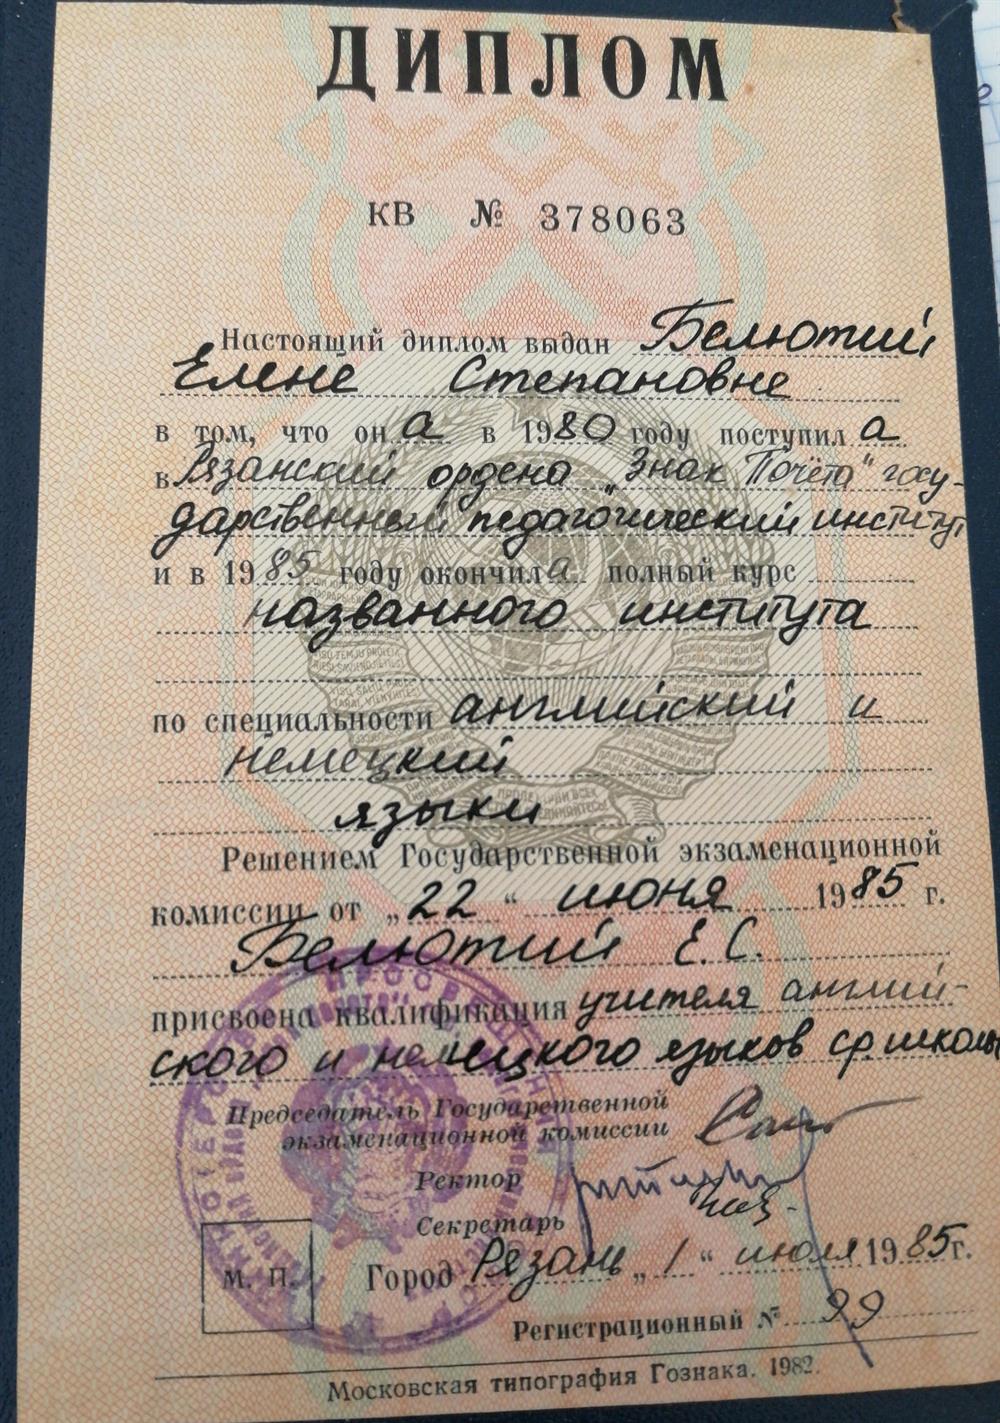 ДИПЛОМ
КВ № 378063
Настоящий диплом выдан Белютий
Елене Степановне
в том, что он а в 1980 году поступил а
в Рязанский ордена „Знак Почёта" госу-
дарственный педагогический институт
и в 1985 году окончил а полный курс
названного института
по специальности английский и
немецкий
языки
Решением Государственной экзаменационной
комиссии от „22" июня 1985 г.
Белютий Е.С.
присвоена квалификация учителя англий-
ского и немецкого языков ср школы
Председатель Государственной
экзаменационной комиссии
Ректор
Секретарь
М. П.
Город Рязань „1" июля 1985г.
Регистрационный № 99
Московская типография Гознака. 1982.